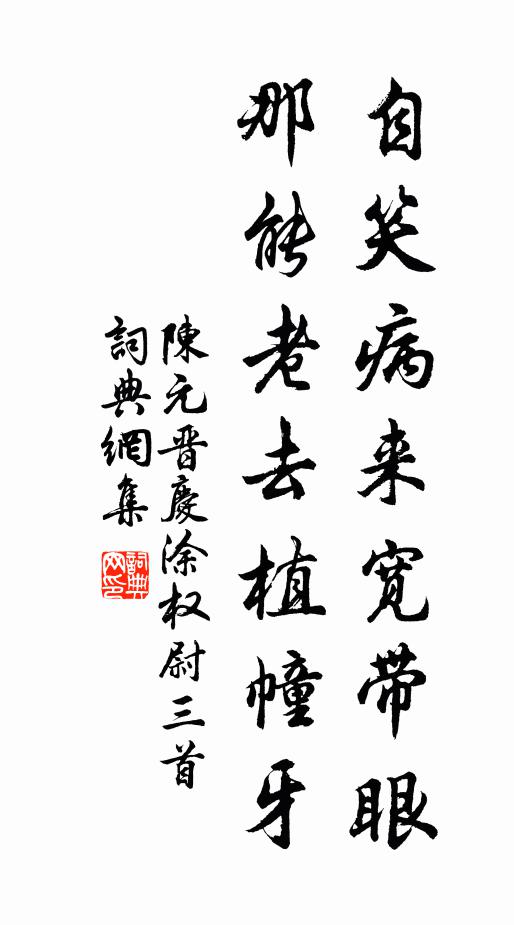 自笑病来宽带眼
那能老去植幢牙
陳元晋慶涂权尉三首
詞典網集
詞典网印